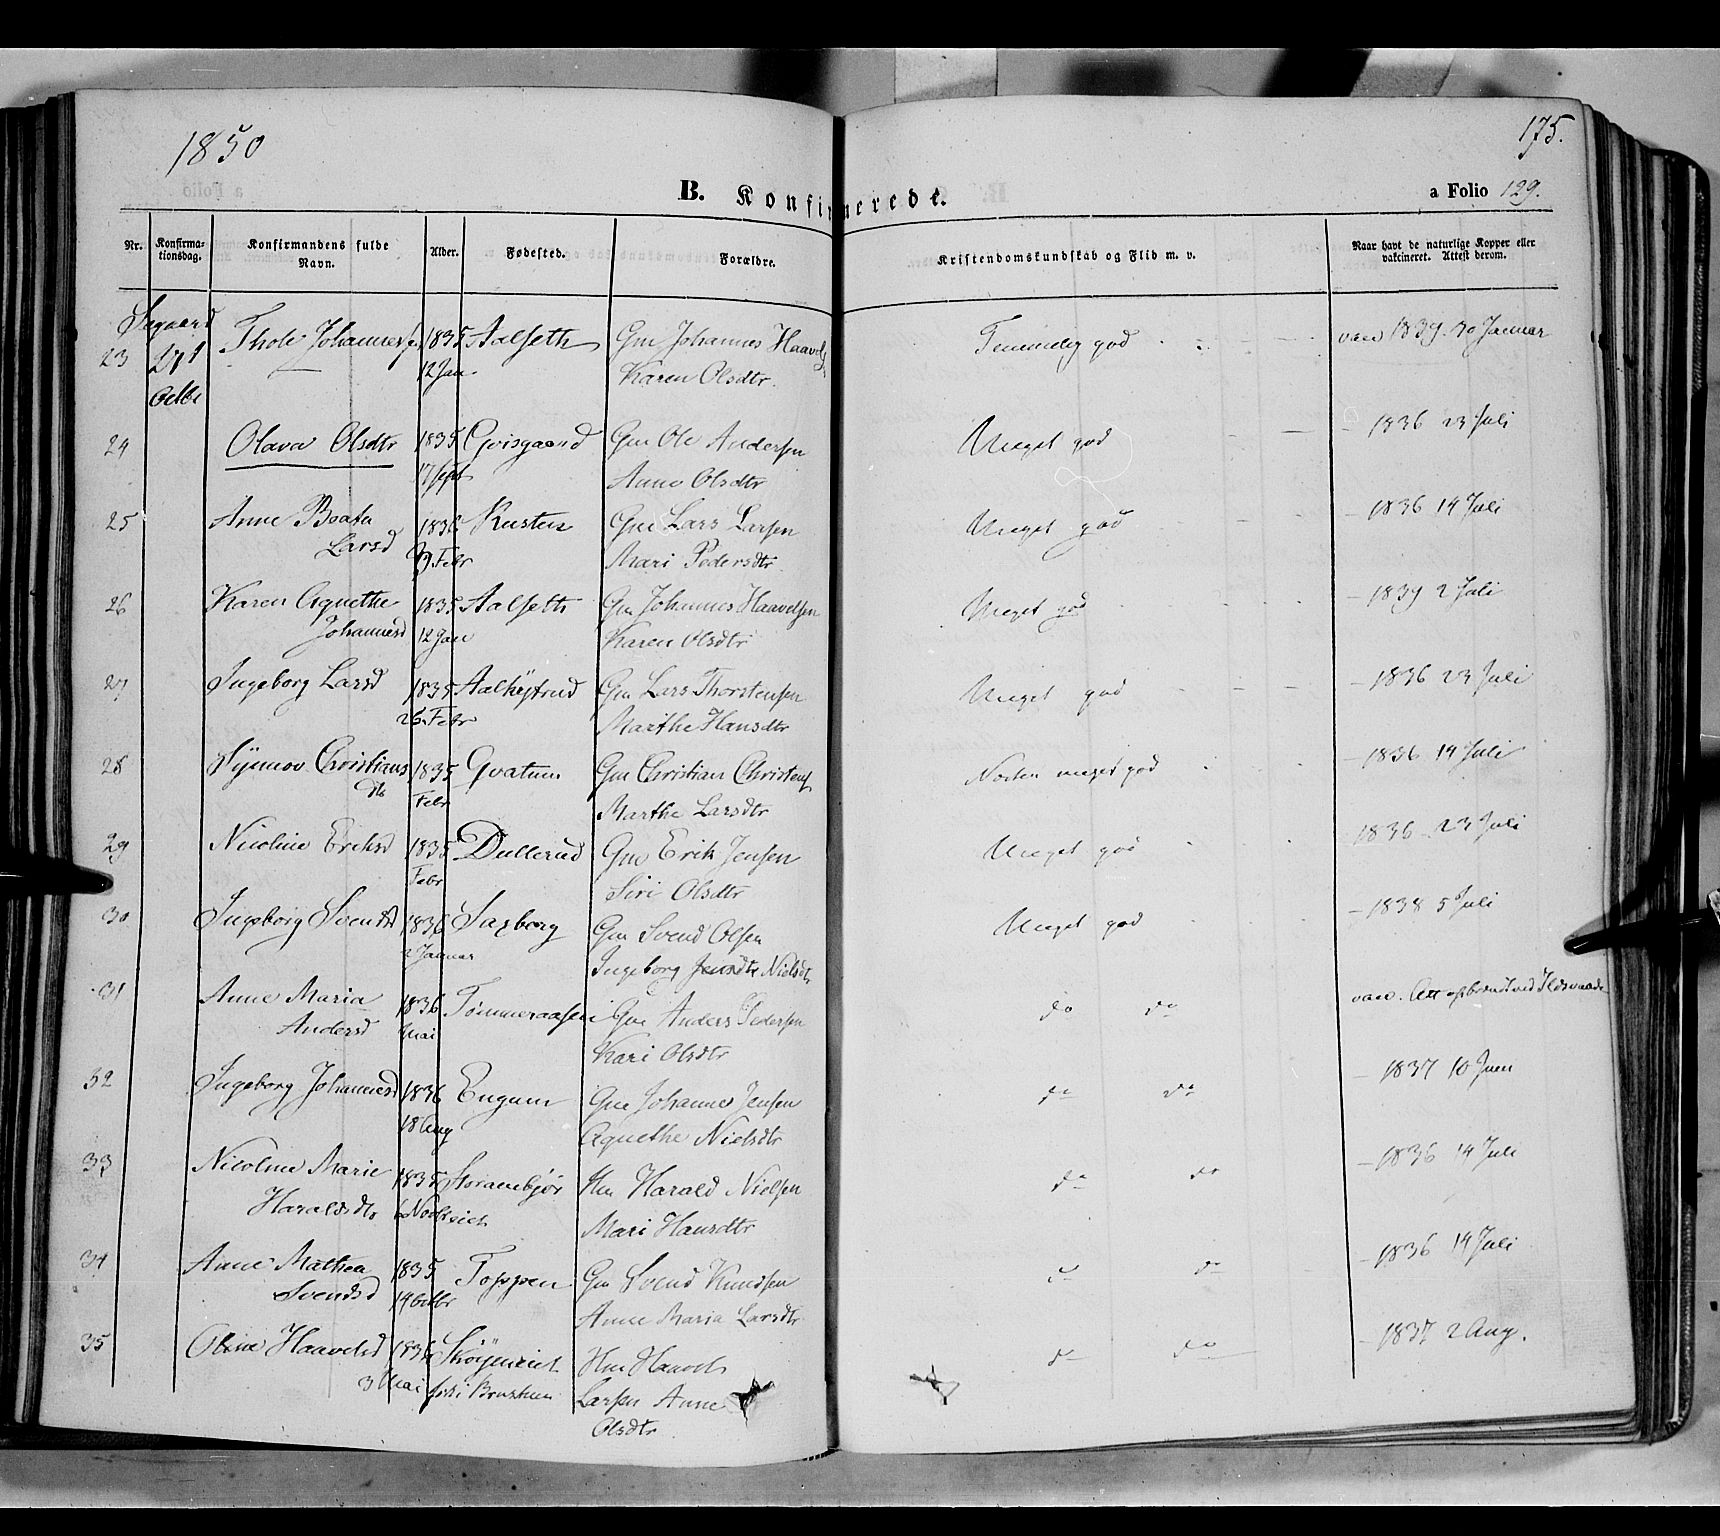 1850
175.
B. Konfirmerede.
a Folio 129.
Nr. Konfirmationsdag. Konfirmandens fulde Navn. Alder. Fødested. Forældre. Kristendomskundskab og Flid m. v. Naar havt de naturlige Kopper eller vaktineret. Attest derom.
23 Thole Johannesen 1835 Aalseth Gm Johannes Haavels god vacc 1839. 30 Januar
Octbr 12 Jan. Karen Olsdtr.
24 Olava Olsdtr 1835 Gvisgaard Gm Ole Andersen Meget god - 1836 23 Juli
17 Sept Anne Olsdtr
25 Anne Beata 1836 Rusten Gm Lars Larsen Meget god - 1836 14 Juli
Larsd Febr Mari Pedersdtr
26 Karen Agnethe 1835 Aalseth Gm Johannes Haavelsen Meget god - 1839 2 Juli
Johannesd 12 Jan Karen Olsdtr
27 Ingeborg Larsd 1835 Gm Lars Thorstensen Meget god - 1836 23 Juli
26. Febr Marthe Hansdtr
28 Christians 1835 Gvatum Gm Christian Christens Noksaa meget god - 1836 14 Juli
dtr Febr Marthe Larsdtr
29 Nicoline Eriksd 1835 Dullerud Gm Erik Jensen Meget god 1836 23 Juli
Febr Siri Olsdtr
30 Ingeborg Svensd 1836 Saxborg Gm Svend Olsen Meget god - 1838 5 Juli
2 Januar Ingeborg Nielsdtr
31 Anne Maria 1836 Tømmeraasen Gm Anders Pedersen do do vacc. Att opbrændt ved Ildsvaade
Andersd Mai Kari Olsdtr
32 Ingeborg Johannesd 1836 Engum Gm Johannes Jensen do do - 1837 10 Juni
18 Aug Agnethe Nielsdtr
33 Nicoline Marie 1835 Hm Harald Nielsen do do - 1836 14 Juli
Haraldsdtr 6 Novbr eiet Mari Hansdtr
34 Anne Mathea 1835 Toppen Gm Svend Knudsen do do - 1836 14 Juli
Svendsd 14 Octbr Anne Maria Larsdtr
35 Haavelsd 1836 Skøyeneiet Hm Haavel do do - 1837 2 Aug.
3 Mai Larsen Anne
Olsdtr